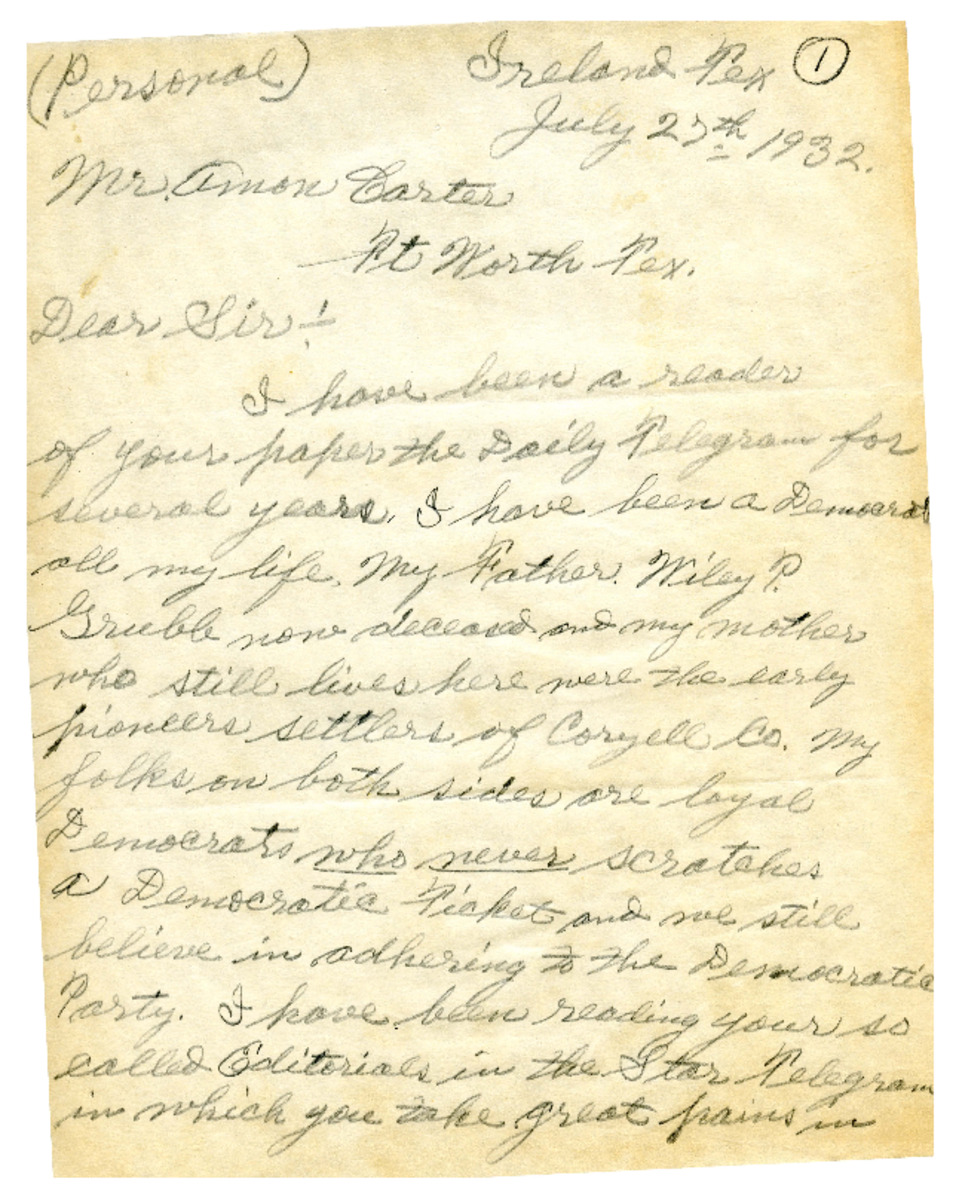 (Personal) Ireland Tex ①
July 27th 1932.
Mr. Amon Carter
Ft Worth Tex.
Dear Sir:-
I have been a reader
of your paper the Daily Telegram for
several years. I have been a Democrat
all my life. My Father. Wiley P.
Gruble now deceased and my mother
who still lives here were the early
pioneers settlers of Coryell Co. My
folks on both sides are loyal
Democrats who never scratches
a Democratic Ticket and we still
believe in adhering to the Democratic
Party. I have been reading your so
called Editorials in the Star Telegram
in which you take great pains in